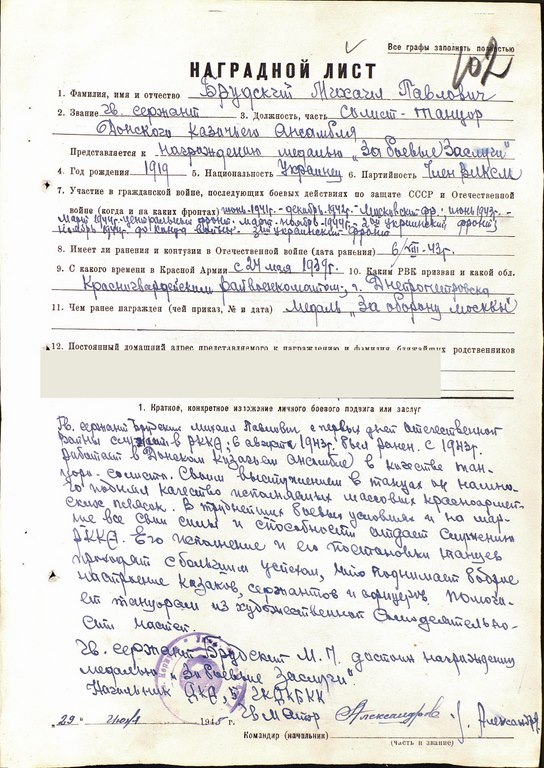 Все графы заполнять полностью
102
НАГРАДНОЙ ЛИСТ
1. Фамилия, имя и отчество Брудский Михаил Павлович
2. Звание гв. сержант 3. Должность, часть Солист-танцор
Донского Казачьего Ансамбля
Представляется к награждению медалью „За боевые Заслуги"
4. Год рождения 1919 5. Национальность Украинец 6. Партийность Член ВЛКСМ
7. Участие в гражданской войне, последующих боевых действиях по защите СССР и Отечественной
войне (когда и на каких фронтах) июнь 1941г.-декабрь 1942г.-Московский фр; июнь 1943г.-
март 1944г. Центральный фронт. март-ноябрь 1944г-2ой украинский фронт;
ноябрь 1944г-до конца войны. 3ий украинский фронт
8. Имеет ли ранения и контузии в Отечественной войне (дата ранения) 6/VIII-43г.
9. С какого времени в Красной Армии с 24 мая 1939г. 10. Каким РВК призван и какой обл.
Красногвардейским райвоенкоматом, г. Днепропетровска
11. Чем ранее награжден (чей приказ, № и дата) Медаль „За оборону москвы"
12. Постоянный домашний адрес представляемого к награждению и фамилия ближайших родственников
1. Краткое, конкретное изложение личного боевого подвига или заслуг
Гв. сержант Брудский Михаил Павлович с первых дней отечественной
войны служит в РККА; 6 августа 1943г. был ранен. С 1943г.
работает в Донском Казачьем ансамбле в качестве тан-
цора-солиста. Своим выступлением в танцах он намно-
го поднял качество исполняемых массовых красноармей-
ских плясок. В труднейших боевых условиях и на мар-
ше все свои силы и способности отдает служению
РККА. Его исполнение и его постановки танцев
проходят с большим успехом, что поднимает бодрое
настроение казаков, сержантов и офицеров. Помога-
ет танцорам из художественной самодеятельно-
сти частей.
Гв. сержант Брудский М. П. достоин награждения
медалью „За боевые Заслуги"
Начальник ДКА, 5 ГКДКБКК
Гв Майор Александров
"29" мая 1945 г.
Командир (начальник)
(часть и звание)